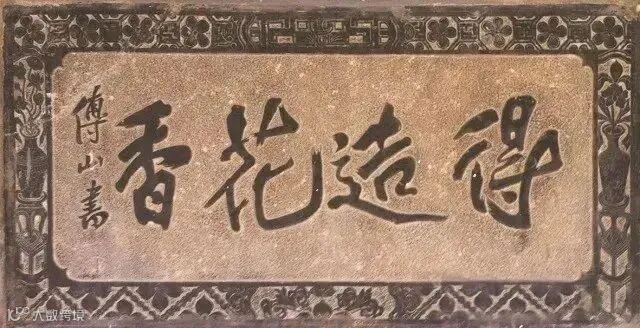 得造花香
傅山書
大数跨境